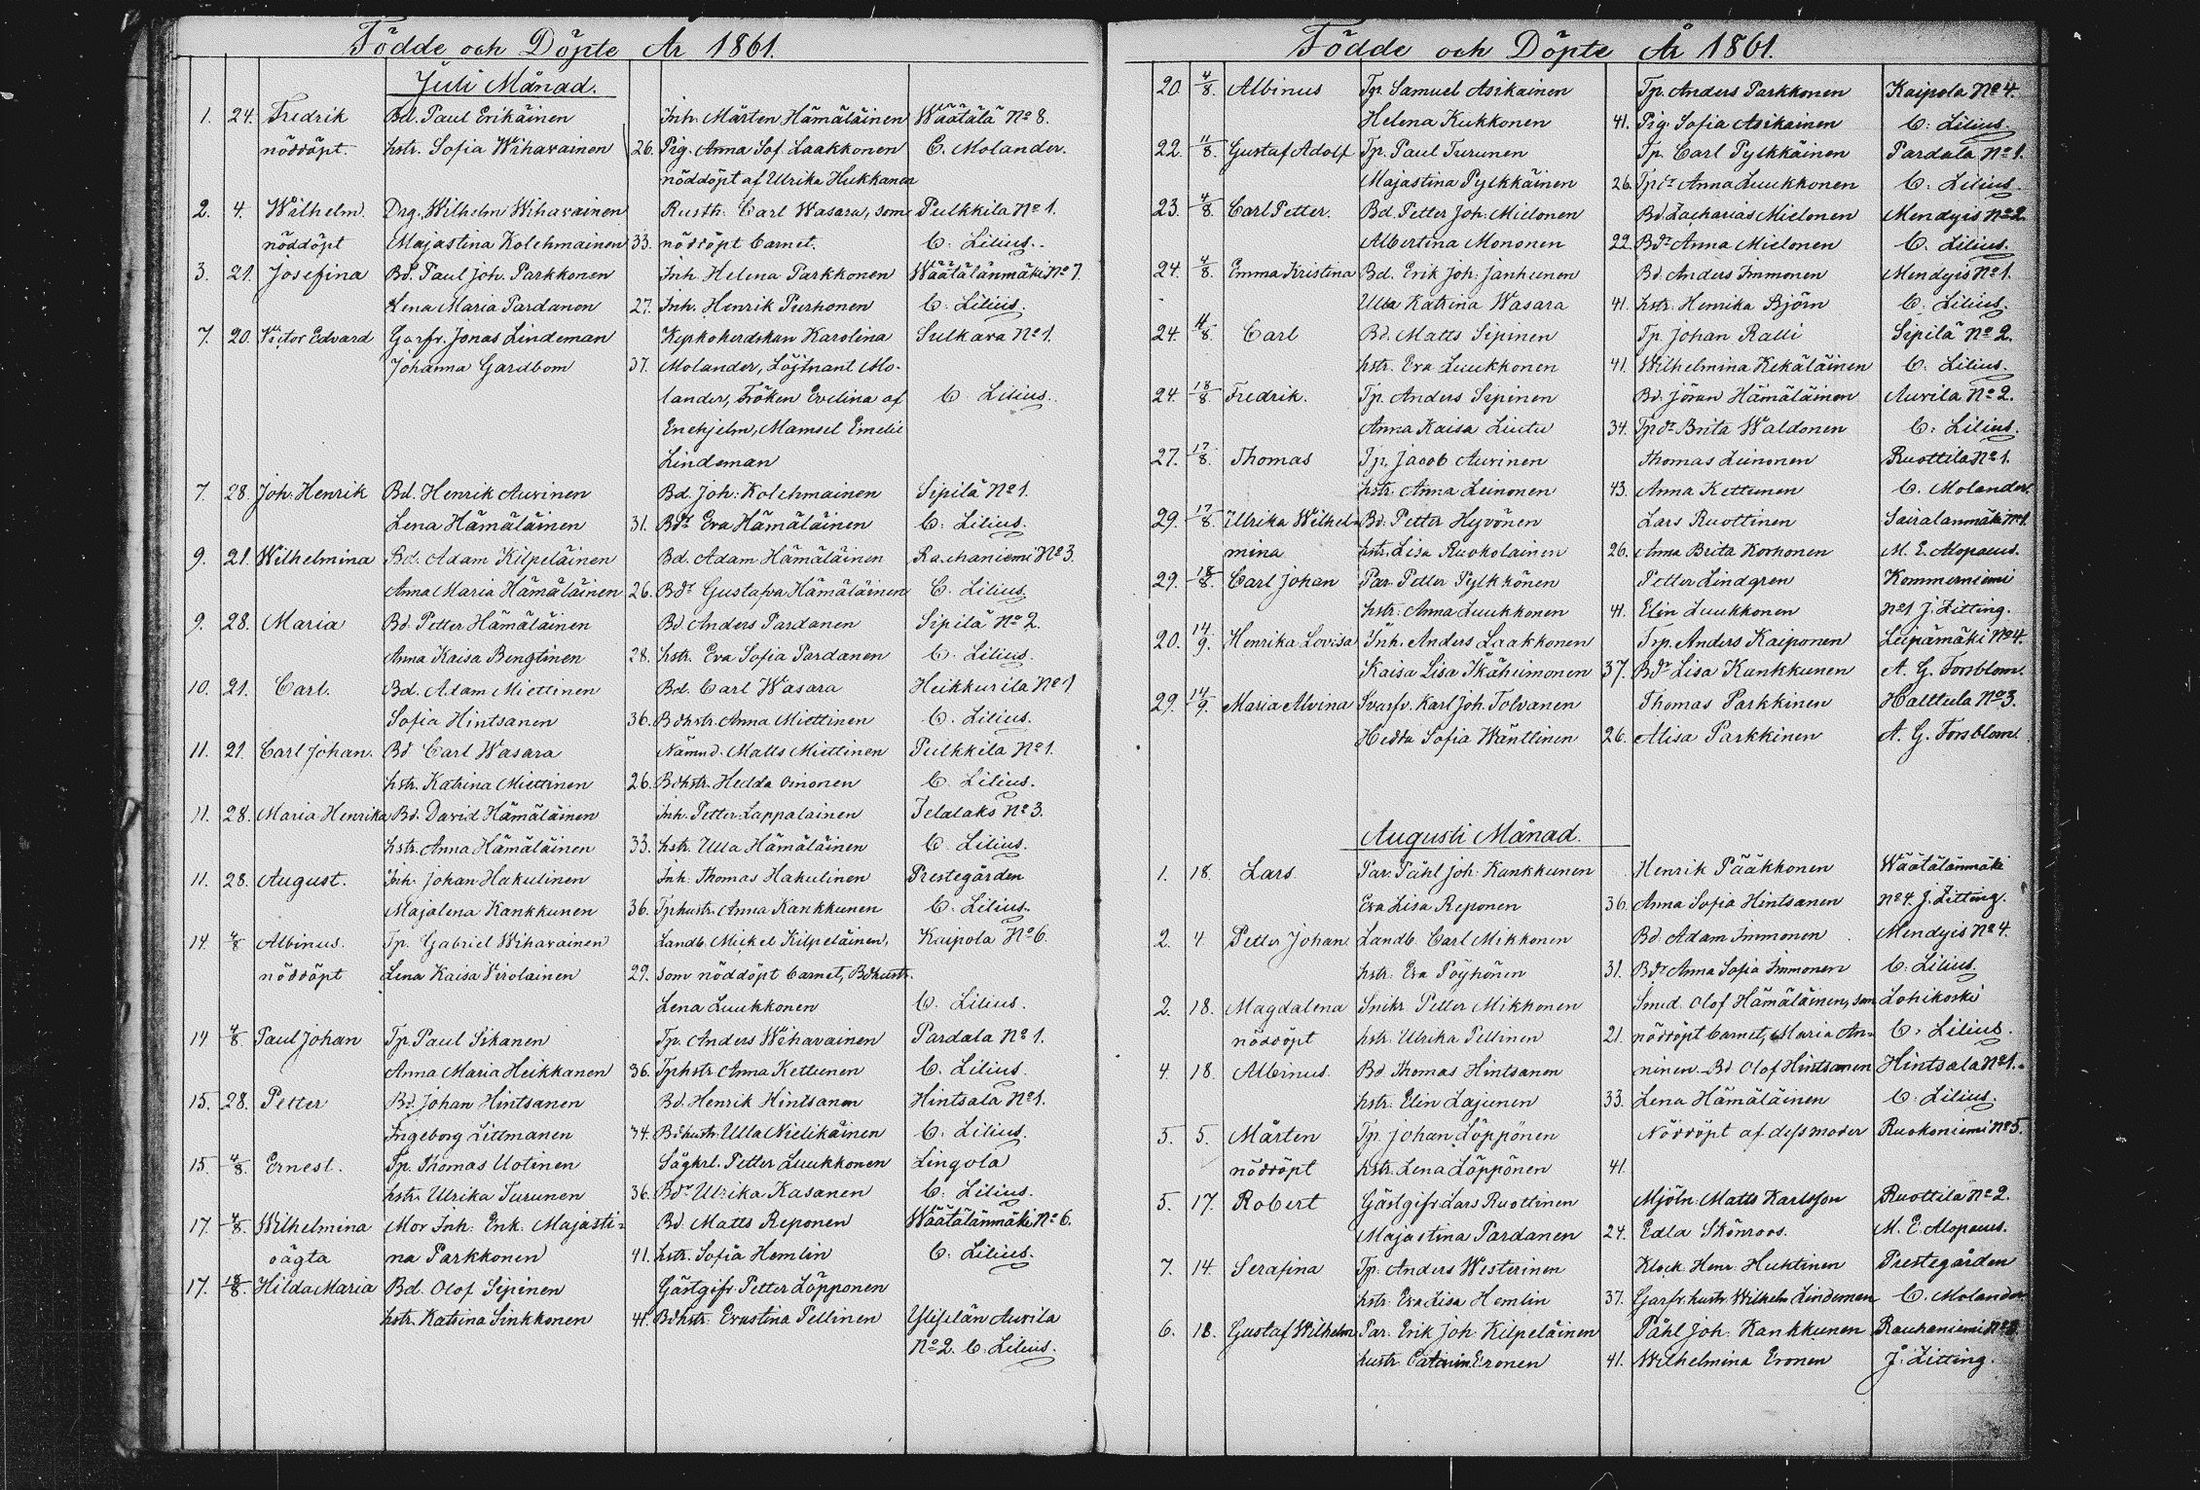 Födde och Döpte År 1861.
Juli Månad.
1. 24. Fredrik Bd. Paul Erikäinen Inh. Mårten Hämäläinen Wäätälä No 8.
nöddöpt. hstr. Sofia Wihavainen 26. Pig. Anna Sof. Laakkonen C. Molander.
nöddöpt af Ulrika Hukkanen
2. 4. Wilhelm. Drg. Wilhelm Wihavainen Rusth. Carl Wasara, som Pulkkila No 1.
nöddöpt Majastina Kolehmainen 33. nöddöpt barnet. C. Lilius.
3. 21. Josefina Bd. Paul Joh. Parkkonen Inh. Helena Parkkonen Wäätälänmäki No 7.
Lena Maria Pardanen 27. Inh. Henrik Purhonen C. Lilius.
7. 20. Victor Edvard Garfv. Jonas Lindeman Kyrkoherdskan Karolina Sulkava No 1.
Johanna Gardbom 37. Molander, Löjtnant Mo-
lander, Fröken Evelina af C. Lilius.
Enehjelm, Mamsel Emelie
Lindeman
7. 28. Joh. Henrik Bd. Henrik Auvinen Bd. Joh: Kolehmainen Sipilä No 1.
Lena Hämäläinen 31. Bdr Eva Hämäläinen C. Lilius.
9. 21. Wilhelmina Bd. Adam Kilpeläinen Bd. Adam Hämäläinen Rauhaniemi No 3.
Anna Maria Hämäläinen 26. Bdr Gustafva Hämäläinen C. Lilius.
9. 28. Maria Bd. Petter Hämäläinen Bd Anders Pardanen Sipilä No 2.
Anna Kaisa Bengtinen 28. hstr. Eva Sofia Pardanen C. Lilius.
10. 21. Carl. Bd. Adam Miettinen Bd. Carl Wasara Heikkurila No 1
Sofia Hintsanen 36. Bdhstr. Anna Miettinen C. Lilius.
11. 21. Carl Johan. Bd Carl Wasara Nämnd. Matts Miettinen Pulkkila No 1.
hstr. Katrina Miettinen 26. Bdhstr. Hedda Oinonen C. Lilius.
11. 28. Maria Henrika Bd. David Hämäläinen Inh. Petter Lappalainen Telalaks No 3.
hstr. Anna Hämäläinen 33. hstr. Ulla Hämäläinen C. Lilius.
11. 28. August. Inh. Johan Hakulinen Inh. Thomas Hakulinen Prestegården
Majalena Kankkunen 36. Tphustr. Anna Kankkunen C. Lilius.
14. 4/8 Albinus. Tp. Gabriel Wihavainen Landb. Mickel Kilpeläinen, Kaipola No 6.
nöddöpt Lena Kaisa Virolainen 29. som nöddöpt barnet, Bdhustr.
Lena Luukkonen C. Lilius.
14 4/8 Paul Johan Tp. Paul Sikanen Tp. Anders Wihavainen Pardala No 1.
Anna Maria Heikkanen 36. Tphstr Anna Kettunen C. Lilius.
15. 28. Petter Bd. Johan Hintsanen Bd. Henrik Hintsanen Hintsala No 1.
Ingeborg Littmanen 34. Bdhustr. Ulla Nielikäinen C. Lilius.
15. 4/8. Ernest. Tp. Thomas Uotinen Sågkrl. Petter Luukkonen Lingola
hstr. Ulrika Turunen 36. Bdr Ulrika Kasanen C. Lilius.
17. 4/8. Wilhelmina Mor Inh. Enk. Majasti= Bd. Matts Reponen Wäätälänmäki No 6.
oägta na Parkkonen 41. hstr. Sofia Hemlin C. Lilius.
17. 18/8. Hilda Maria Bd. Olof Sipinen Gästgifv. Petter Löpponen
hstr. Katrina Sinkkonen 41. Bdhstr. Evastina Pellinen Auvila
No 2. C. Lilius.
Födde och Döpte År 1861.
20. 4/8. Albinus Tp. Samuel Asikainen Tp. Anders Parkkonen Kaipola No 4.
Helena Kukkonen 41. Pig. Sofia Asikainen C. Lilius.
22. 4/8. Gustaf Adolf Tp. Paul Turunen Tp. Carl Pylkkäinen Pardala No 1.
Majastina Pylkkäinen 26. Tpdr Anna Luukkonen C. Lilius.
23. 4/8. Carl Petter. Bd. Petter Joh. Mielonen Bd. Zacharias Mielonen Mendyis No 2
Albertina Mononen 22. Bdr Anna Mielonen C. Lilius.
24. 4/8. Emma Kristina Bd. Erik Joh. Janhunen Bd. Anders Immonen Mendyis No 1.
Ulla Katrina Wasara 41. hstr. Henrika Björn C. Lilius.
24. 4/8. Carl Bd. Matts Sipinen Tp. Johan Ralli Sipilä No 2.
hstr. Eva Luukkonen 41. Wilhelmina Kekäläinen C. Lilius.
24. 18/8. Fredrik. Tp. Anders Sipinen Bd. Jöran Hämäläinen Auvila No 2.
Anna Kaisa Liutu 34. Tpdr Brita Waldonen C. Lilius.
27. 17/8. Thomas Tp. Jacob Auvinen Thomas Leinonen Ruottila No 1.
hstr. Anna Leinonen 43. Anna Kettunen C. Molander.
29. 17/8. Ulrika Wilhel- Bd. Petter Hyvönen Lars Ruottinen Sairalanmäki No 1.
mina hstr. Lisa Ruokolainen 26. Anna Brita Korhonen M. E. Alopaeus.
29. 18/8. Carl Johan Par. Petter Pylkkönen Petter Lindgren Kommerniemi
hstr. Anna Luukkonen 41. Elin Luukkonen No 1 J. Zitting.
20. 14/9. Henrika Lovisa Inh. Anders Laakkonen Trp. Anders Kaiponen Leipämäki No 4.
Kaisa Lisa Ikäheimonen 37. Bdr Lisa Kankkunen A. G. Forsblom.
29. 14/9. Maria Alvina Svarfv. Karl Joh. Tolvanen Thomas Parkkinen Halttula No 3.
Hedda Sofia Wänttinen 26. Alisa Parkkinen A. G. Forsblom.
Augusti Månad.
1. 18. Lars Par. Påhl Joh. Kankkunen Henrik Pääkkonen Wäätälänmäki
Eva Lisa Reponen 36. Anna Sofia Hintsanen No 4. J. Zitting.
2. 4. Petter Johan Landb. Carl Mikkonen Bd. Adam Immonen Mendyis No 4.
hstr. Eva Pöyhönen 31. Bdr Anna Sofia Immonen C. Lilius.
2. 18. Magdalena Snikr Petter Mikkonen Smed. Olof Hämäläinen, som Lohikoski
nöddöpt hstr. Ulrika Pellinen 21. nöddöpt barnet, Maria An= C. Lilius.
4. 18. Albinus. Bd Thomas Hintsanen ninen. Bd. Olof Hintsanen Hintsala No 1.
hstr. Elin Lajunen 33. Lena Hämäläinen C. Lilius.
5. 5. Mårten Tp. Johan Löppönen Nöddöpt af dess moder Ruokoniemi No 5.
nöddöpt hstr. Lena Löppönen 41.
5. 17. Robert Gästgifv Lars Ruottinen Mjöln. Matts Karlsson Ruottila No 2.
Majastina Pardanen 24. Edla Skönroos. M. E. Alopaeus.
7. 14. Serafina Tp. Anders Westerinen Klock. Henr. Huhtinen Prestegården
hstr. Eva Lisa Hemlin 37. Garfv. hustr. Wilhelm. Lindeman C. Molander
6. 18. Gustaf Wilhelm Par. Erik Joh. Kilpeläinen Påhl Joh. Kankkunen Rauhaniemi
hustr. Catarin. Eronen 41. Wilhelmina Eronen J. Zitting.